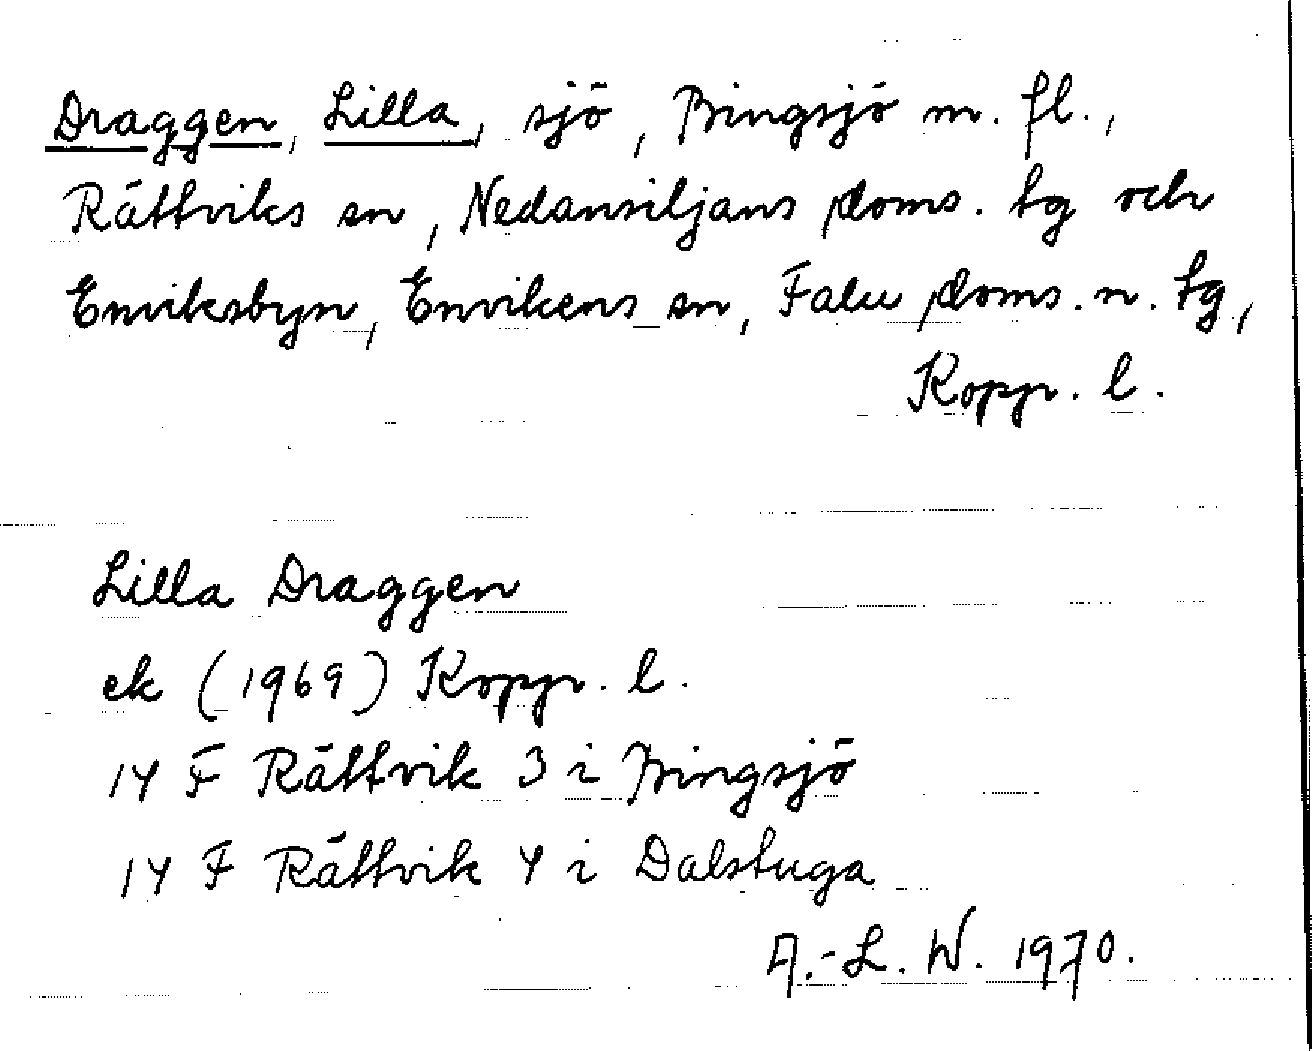 Draggen, Lilla, sjö, Bingsjö m. fl.,
Rättviks sn, Nedansiljans doms. tg och
Enviksbyn, Envikens sn, Falu doms. n. tg,
Kopp. l.
Lilla Draggen
ek (1969) Kopp. l.
14 F Rättvik 3 i Bingsjö
14 F Rättvik 4 i Dalstuga
A.-L. W. 1970.